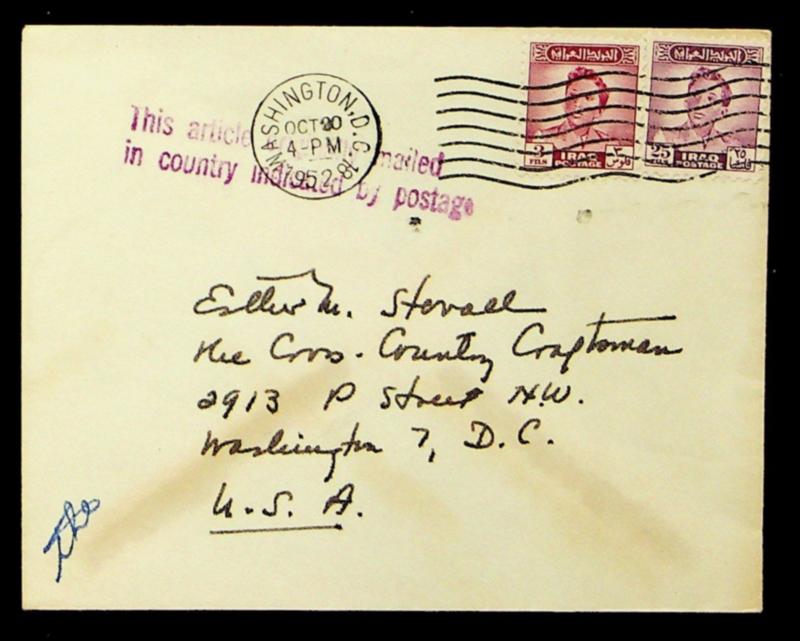 WASHINGTON, D.C. 18
OCT 20
4 - PM
1952
This article mailed
in country indicated by postage
3
FILS
IRAQ
POSTAGE
٣
فلوس
25
FILS
IRAQ
POSTAGE
٢٥
Esther M. Stovall
The Cross-Country Craftsman
2913 P Street N.W.
Washington 7, D.C.
U.S.A.